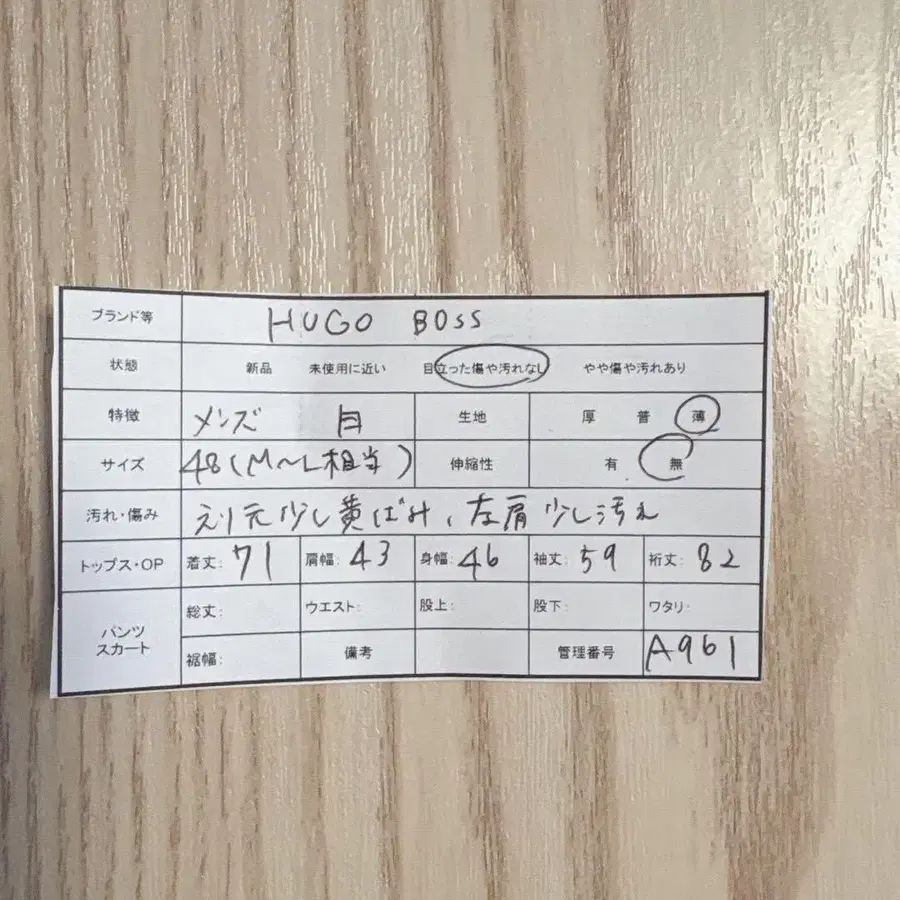 ブランド等 HUGO BOSS
状態 新品 未使用に近い 目立った傷や汚れなし やや傷や汚れあり
特徴 メンズ 生地 厚 普 薄
サイズ 48(M〜L相当) 伸縮性 有 無
汚れ・傷み えり元少し黄ばみ、左肩少し汚れ
トップス・OP 着丈: 71 肩幅: 43 身幅: 46 袖丈: 59 裄丈: 82
パンツ スカート 総丈: ウエスト: 股上: 股下: ワタリ:
裾幅: 備考 管理番号 A961